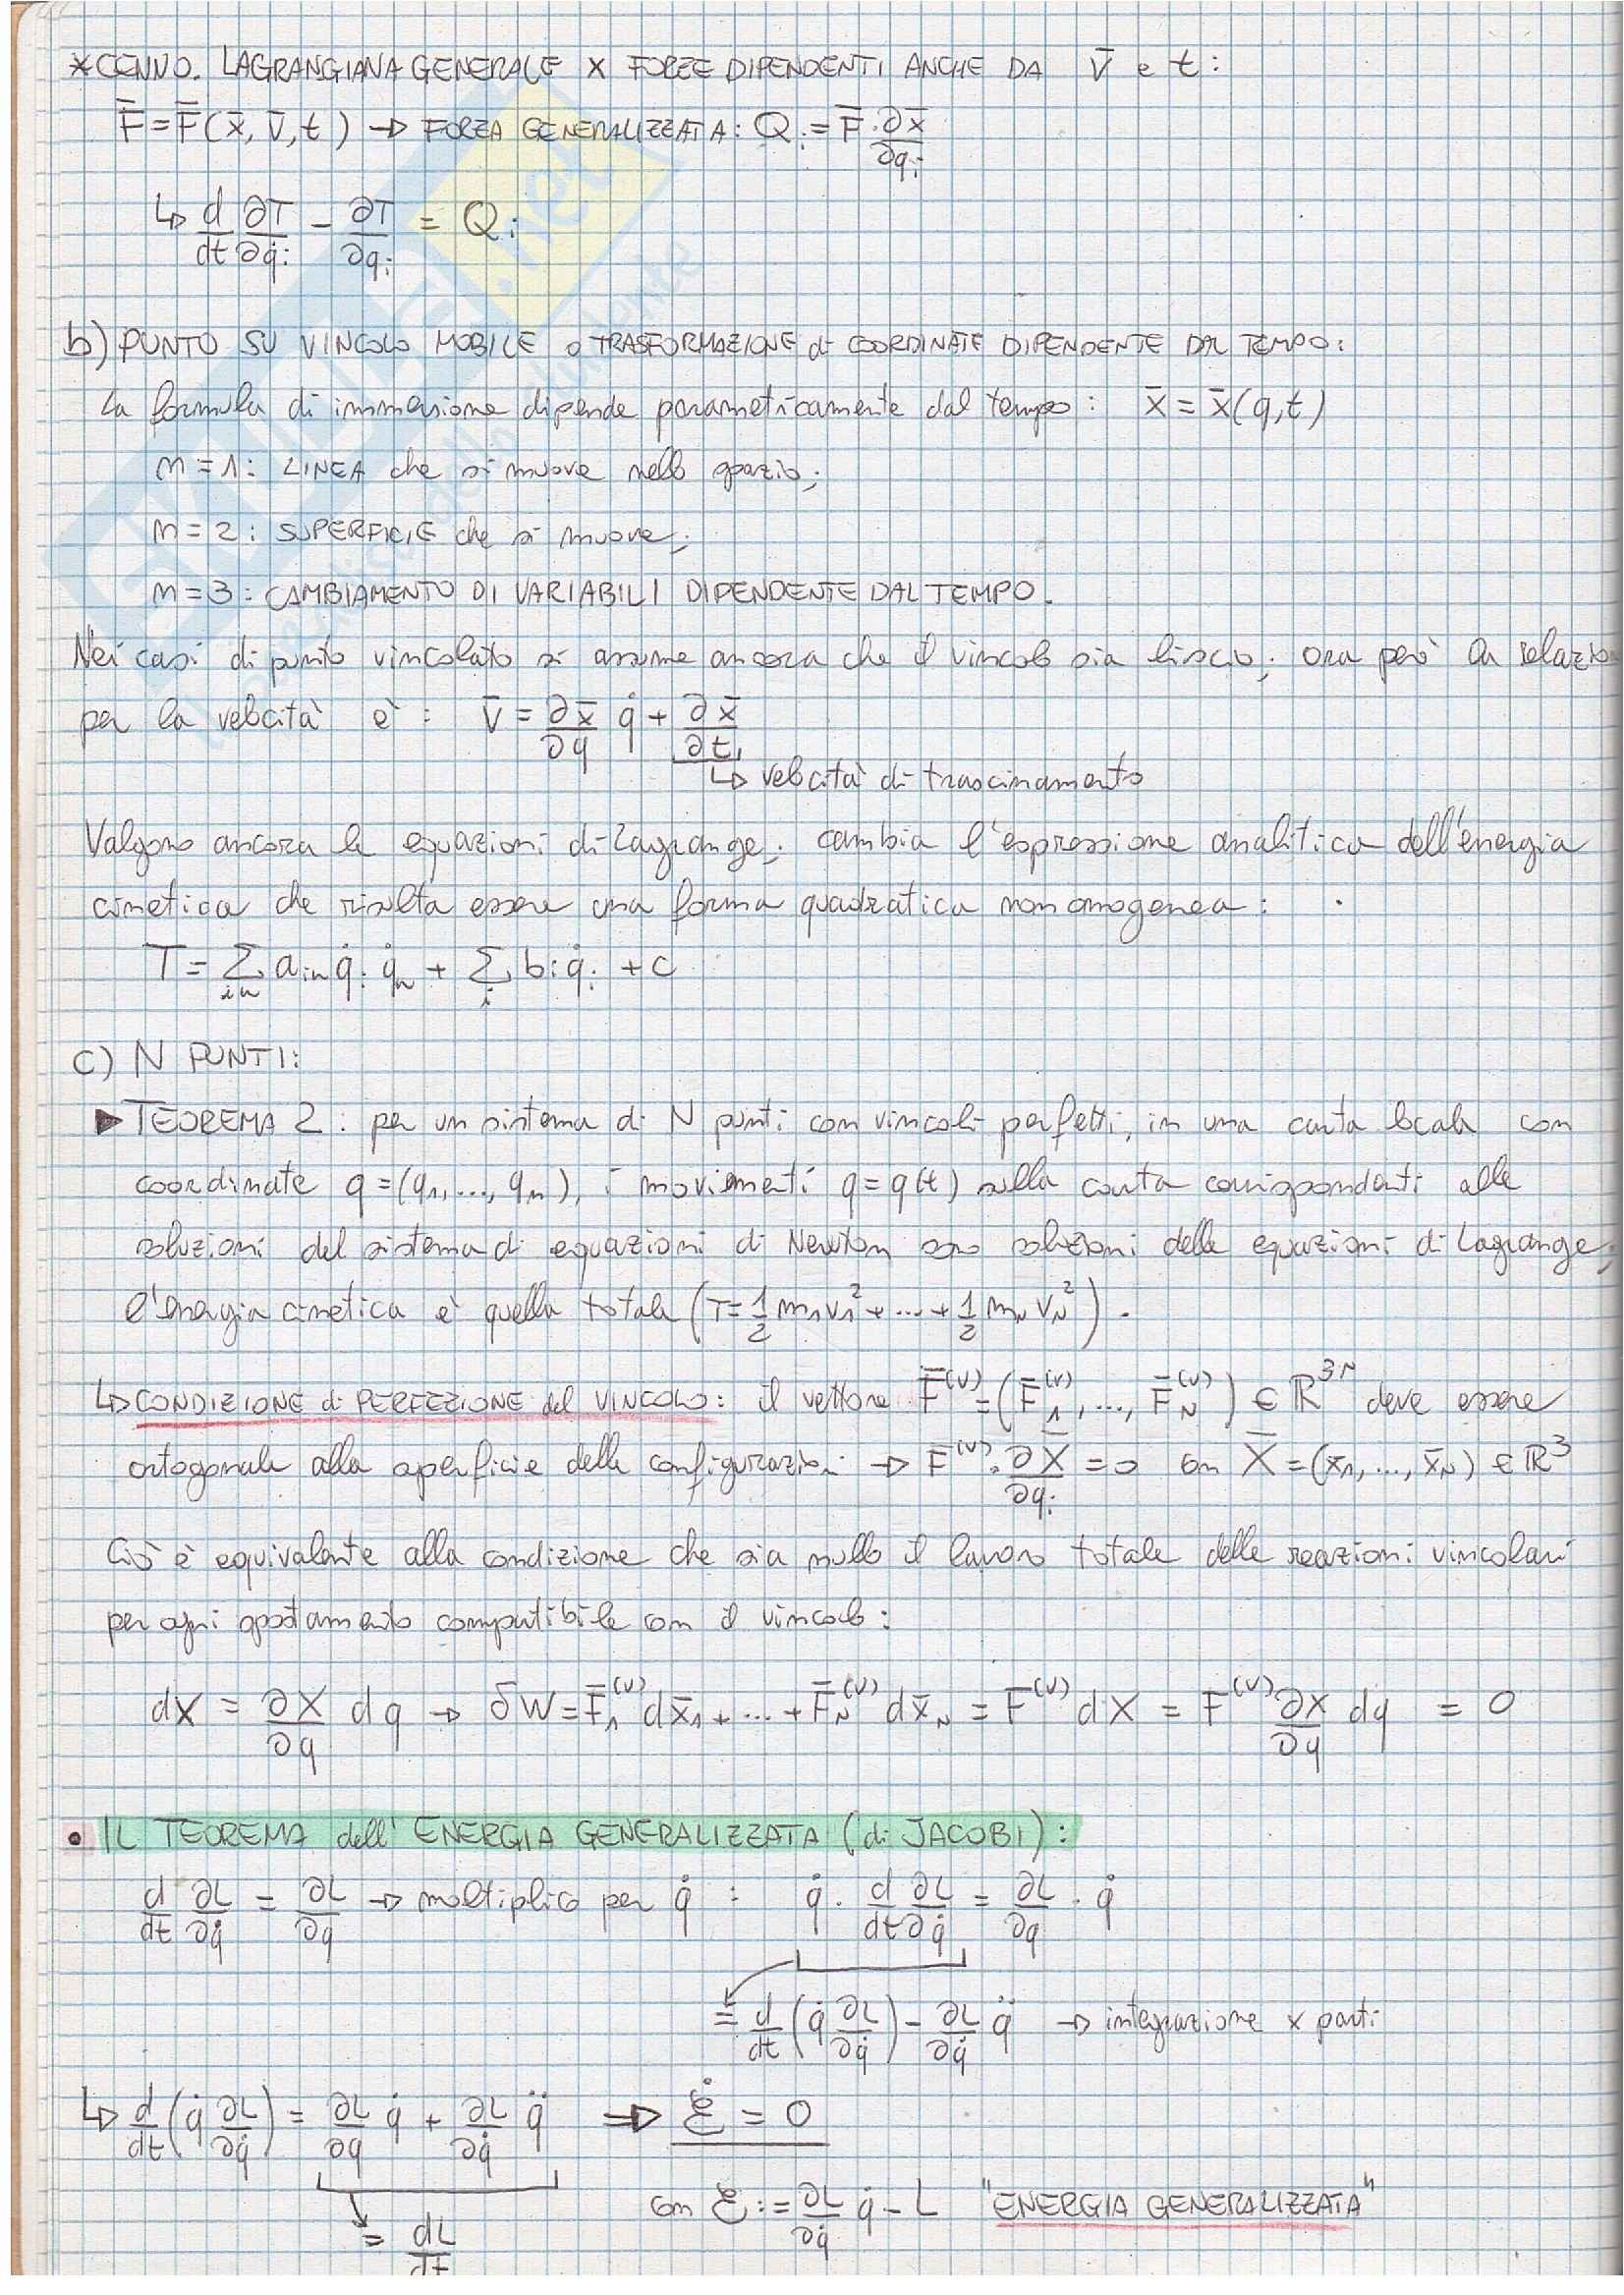 *CENNO. LAGRANGIANA GENERALE X FORZE DIPENDENTI ANCHE DA v̄ e t:
F̄ = F̄(x̄, v̄, t) → FORZA GENERALIZZATA: Qᵢ := F̄·∂x̄/∂qᵢ
↳ d/dt ∂T/∂q̇ᵢ - ∂T/∂qᵢ = Qᵢ
b) PUNTO SU VINCOLO MOBILE o TRASFORMAZIONE di COORDINATE DIPENDENTE DAL TEMPO:
La formula di immersione dipende parametricamente dal tempo: x̄ = x̄(q,t)
m=1: LINEA che si muove nello spazio;
m=2: SUPERFICIE che si muove;
m=3: CAMBIAMENTO DI VARIABILI DIPENDENTE DAL TEMPO.
Nei casi di punto vincolato si assume ancora che il vincolo sia liscio; ora però la relazio
per la velocità è: v̄ = ∂x̄/∂q q̇ + ∂x̄/∂t
↳ velocità di trascinamento
Valgono ancora le equazioni di Lagrange; cambia l'espressione analitica dell'energia
cinetica che risulta essere una forma quadratica non omogenea:
T = Σᵢₕ aᵢₕ q̇ᵢ q̇ₕ + Σᵢ bᵢ q̇ᵢ + c
c) N PUNTI:
▶ TEOREMA 2: per un sistema di N punti con vincoli perfetti, in una carta locale con
coordinate q=(q₁,...,qₙ), i movimenti q=q(t) sulla carta corrispondenti alle
soluzioni del sistema di equazioni di Newton sono soluzioni delle equazioni di Lagrange;
l'energia cinetica è quella totale (T = 1/2 m₁v₁² + ... + 1/2 m_N v_N²).
↳ CONDIZIONE di PERFEZIONE del VINCOLO: il vettore F̄⁽ᵛ⁾ = (F̄₁⁽ᵛ⁾,..., F̄_N⁽ᵛ⁾) ∈ ℝ³ᴺ deve essere
ortogonale alla superficie delle configurazioni → F̄⁽ᵛ⁾·∂X̄/∂qᵢ = 0 con X̄ = (x̄₁,..., x̄_N) ∈ ℝ³
Ciò è equivalente alla condizione che sia nullo il lavoro totale delle reazioni vincolari
per ogni spostamento compatibile con il vincolo:
dX = ∂X/∂q dq → δW = F̄₁⁽ᵛ⁾ dx̄₁ + ... + F̄_N⁽ᵛ⁾ dx̄_N = F⁽ᵛ⁾ dX = F⁽ᵛ⁾ ∂X/∂q dq = 0
• IL TEOREMA dell'ENERGIA GENERALIZZATA (di JACOBI):
d/dt ∂L/∂q̇ = ∂L/∂q → moltiplico per q̇ : q̇ · d/dt ∂L/∂q̇ = ∂L/∂q · q̇
= d/dt (q̇ ∂L/∂q̇) - ∂L/∂q̇ q̈ → integrazione x parti
↳ d/dt (q̇ ∂L/∂q̇) = ∂L/∂q q̇ + ∂L/∂q̇ q̈ ⇒ ℰ̇ = 0
con ℰ := ∂L/∂q̇ q̇ - L "ENERGIA GENERALIZZATA"
= dL/dt